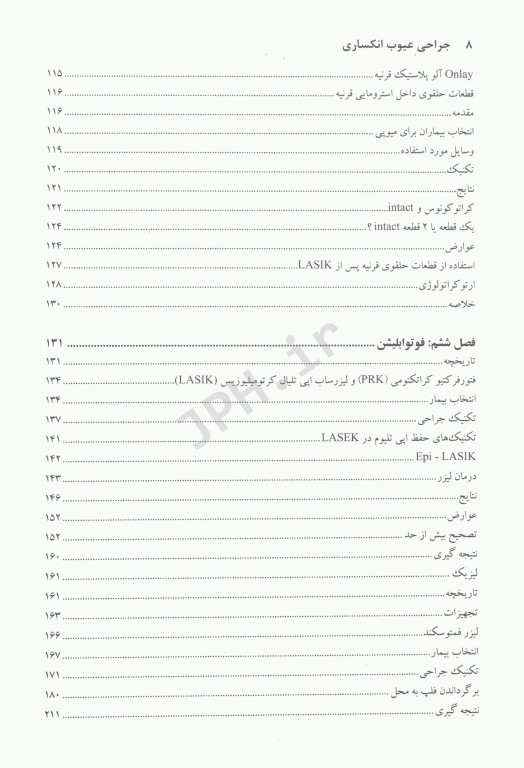 ۸ جراحی عیوب انکساری
Onlay آلو پلاستیک قرنیه ۱۱۵
قطعات حلقوی داخل استرومایی قرنیه ۱۱۶
مقدمه ۱۱۶
انتخاب بیماران برای میوپی ۱۱۸
وسایل مورد استفاده ۱۱۹
تکنیک ۱۲۰
نتایج ۱۲۱
کراتوکونوس و intact ۱۲۲
یک قطعه یا ۲ قطعه intact ؟ ۱۲۴
عوارض ۱۲۴
استفاده از قطعات حلقوی قرنیه پس از LASIK ۱۲۷
ارتوکراتولوژی ۱۲۸
خلاصه ۱۳۰
فصل ششم: فوتوابلیشن ۱۳۱
تاریخچه ۱۳۱
فتورفرکتیو کراتکتومی (PRK) و لیزرساب اپی تلیال کرتومیلیوزیس (LASIK) ۱۳۴
انتخاب بیمار ۱۳۴
تکنیک جراحی ۱۳۷
تکنیک‌های حفظ اپی تلیوم در LASEK ۱۴۱
Epi - LASIK ۱۴۲
درمان لیزر ۱۴۳
نتایج ۱۴۶
عوارض ۱۵۲
تصحیح بیش از حد ۱۵۲
نتیجه گیری ۱۶۰
لیزیک ۱۶۱
تاریخچه ۱۶۱
تجهیزات ۱۶۳
لیزر فمتوسکند ۱۶۶
انتخاب بیمار ۱۶۷
تکنیک جراحی ۱۷۱
برگرداندن فلپ به محل ۱۸۰
نتیجه گیری ۲۱۱
JPH.ir